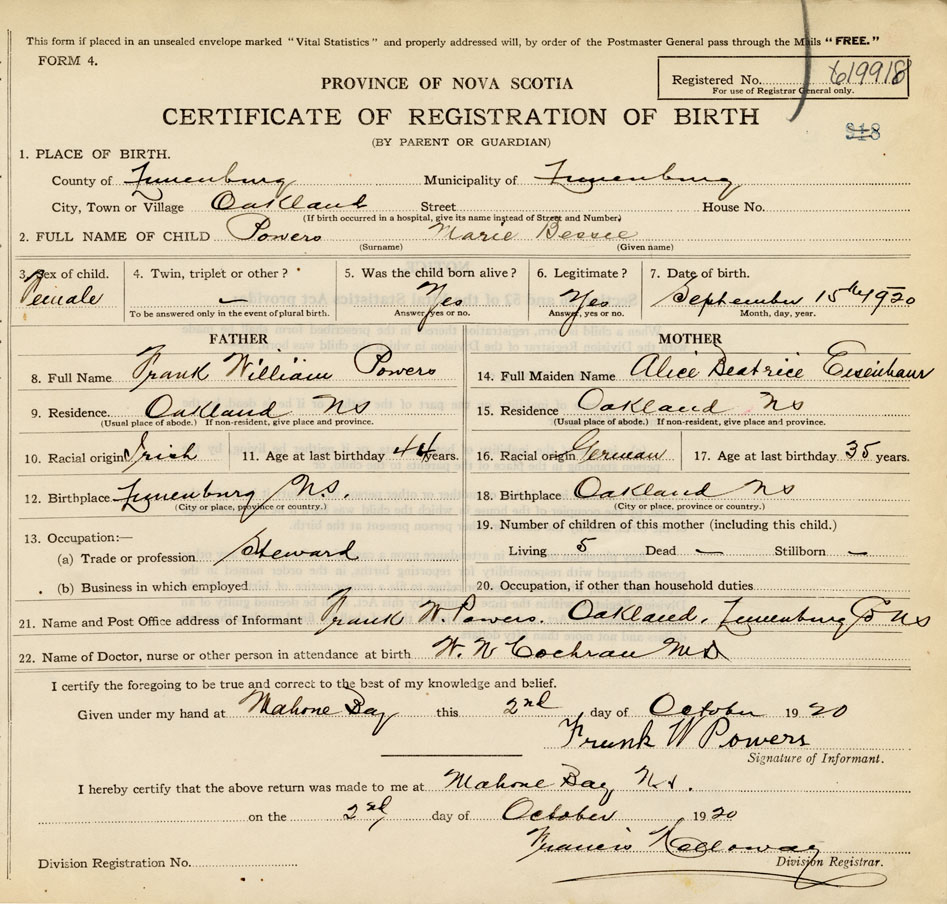 This form if placed in an unsealed envelope marked "Vital Statistics" and properly addressed will, by order of the Postmaster General pass through the Mails "FREE."
FORM 4.
Registered No. 619918
For use of Registrar General only.
PROVINCE OF NOVA SCOTIA
CERTIFICATE OF REGISTRATION OF BIRTH
(BY PARENT OR GUARDIAN)
318
1. PLACE OF BIRTH.
County of Lunenburg Municipality of Lunenburg
City, Town or Village Oakland Street House No.
(If birth occurred in a hospital, give its name instead of Street and Number)
2. FULL NAME OF CHILD Powers Marie Bessie
(Surname) (Given name)
3. Sex of child. 4. Twin, triplet or other? 5. Was the child born alive? 6. Legitimate? 7. Date of birth.
Female — Yes Yes September 15th 1920
To be answered only in the event of plural birth. Answer yes or no. Answer, yes or no. Month, day, year.
FATHER MOTHER
8. Full Name Frank William Powers 14. Full Maiden Name Alice Beatrice Eisenhaur
9. Residence. Oakland NS 15. Residence Oakland NS
(Usual place of abode.) If non-resident, give place and province. (Usual place of abode.) If non-resident, give place and province.
10. Racial origin Irish 11. Age at last birthday 44 years. 16. Racial origin German 17. Age at last birthday 35 years.
12. Birthplace Lunenburg N.S. 18. Birthplace Oakland NS
(City or place, province or country.) (City or place, province or country.)
19. Number of children of this mother (including this child.)
13. Occupation:—
(a) Trade or profession Steward Living 5 Dead — Stillborn —
(b) Business in which employed 20. Occupation, if other than household duties
21. Name and Post Office address of Informant Frank W. Powers. Oakland, Lunenburg Co NS
22. Name of Doctor, nurse or other person in attendance at birth W. N Cochran MD
I certify the foregoing to be true and correct to the best of my knowledge and belief.
Given under my hand at Mahone Bay this 2nd day of October 1920
Frank W Powers
Signature of Informant.
I hereby certify that the above return was made to me at Mahone Bay N.S.
on the 2nd day of October 1920
Francis
Division Registration No. Division Registrar.